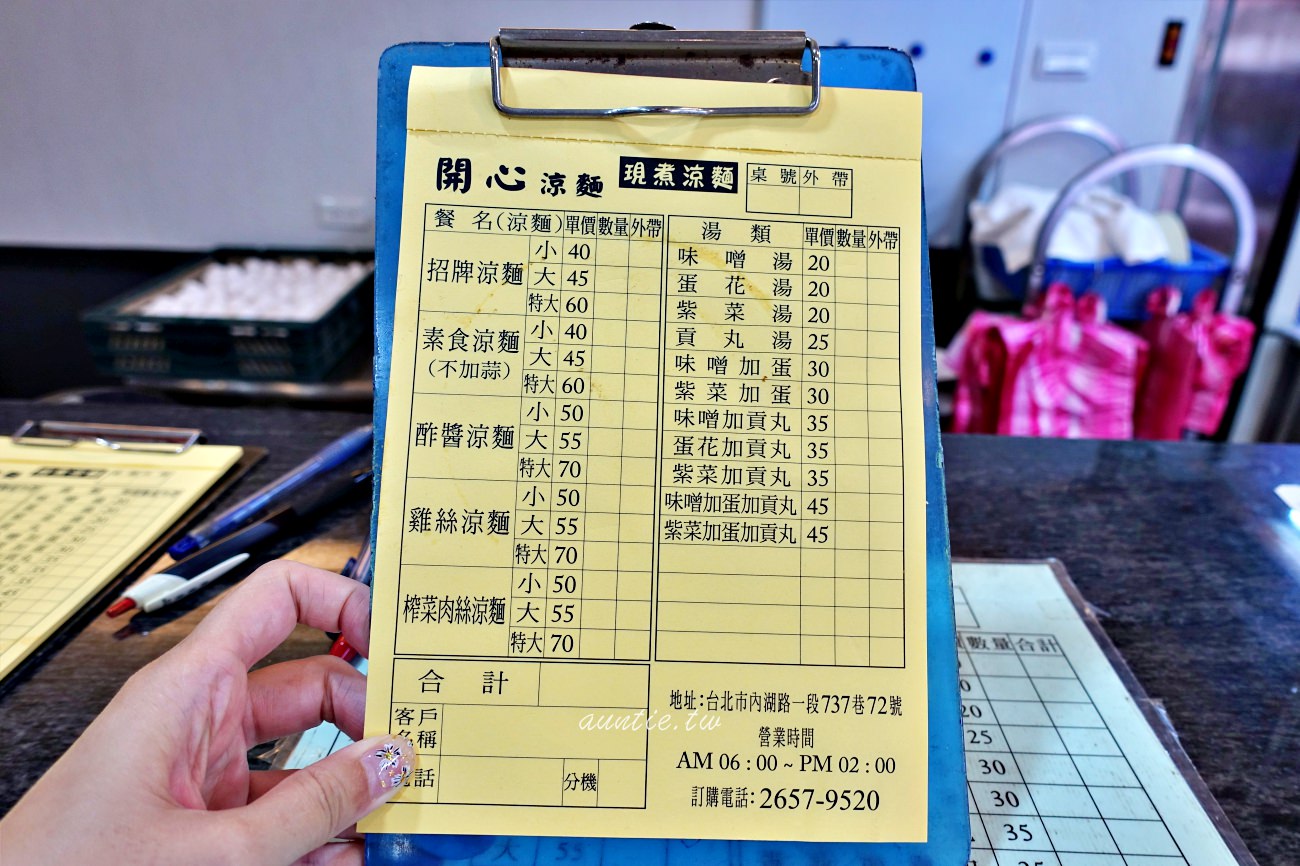 開心涼麵 現煮涼麵
桌號 外帶
餐名(涼麵) 單價 數量 外帶
招牌涼麵
小 40
大 45
特大 60
素食涼麵
(不加蒜)
小 40
大 45
特大 60
酢醬涼麵
小 50
大 55
特大 70
雞絲涼麵
小 50
大 55
特大 70
榨菜肉絲涼麵
小 50
大 55
特大 70
合計
客戶
名稱
電話 分機
湯類 單價 數量 外帶
味噌湯 20
蛋花湯 20
紫菜湯 20
貢丸湯 25
味噌加蛋 30
紫菜加蛋 30
味噌加貢丸 35
蛋花加貢丸 35
紫菜加貢丸 35
味噌加蛋加貢丸 45
紫菜加蛋加貢丸 45
地址:台北市內湖路一段737巷72號
營業時間
AM 06:00~PM 02:00
訂購電話:2657-9520
auntie.tw
數量 合計
20
25
30
30
35
大 55